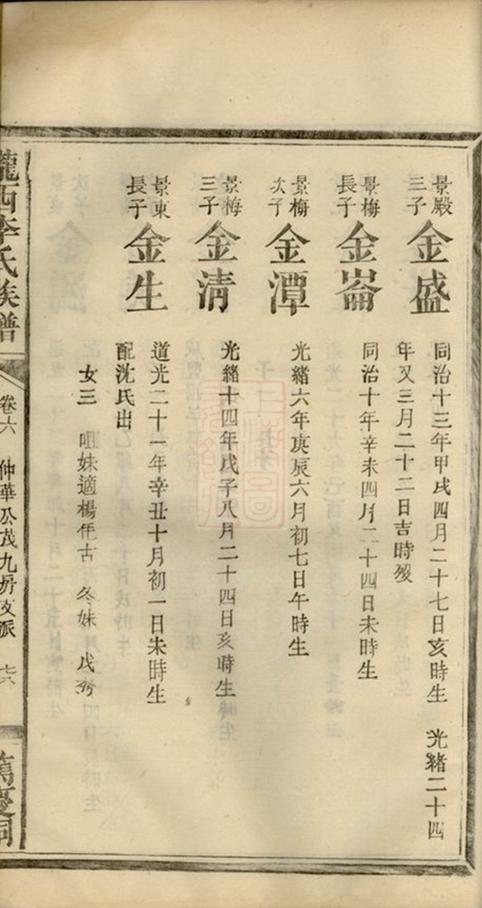 景殿
三子
金盛
同治十三年甲戌四月二十七日亥時生 光緒二十四
年又三月二十二日吉時歿
景梅
長子
金崙
同治十年辛未四月二十四日未時生
景梅
次子
金潭
光緒六年庚辰六月初七日午時生
景梅
三子
金清
光緒十四年戊子八月二十四日亥時生
景東
長子
金生
道光二十一年辛丑十月初一日未時生
配沈氏出
女三 咀妹適楊 古 冬妹 戊
隴西李氏族譜
卷六
仲華公茂九房支派
萬慶祠